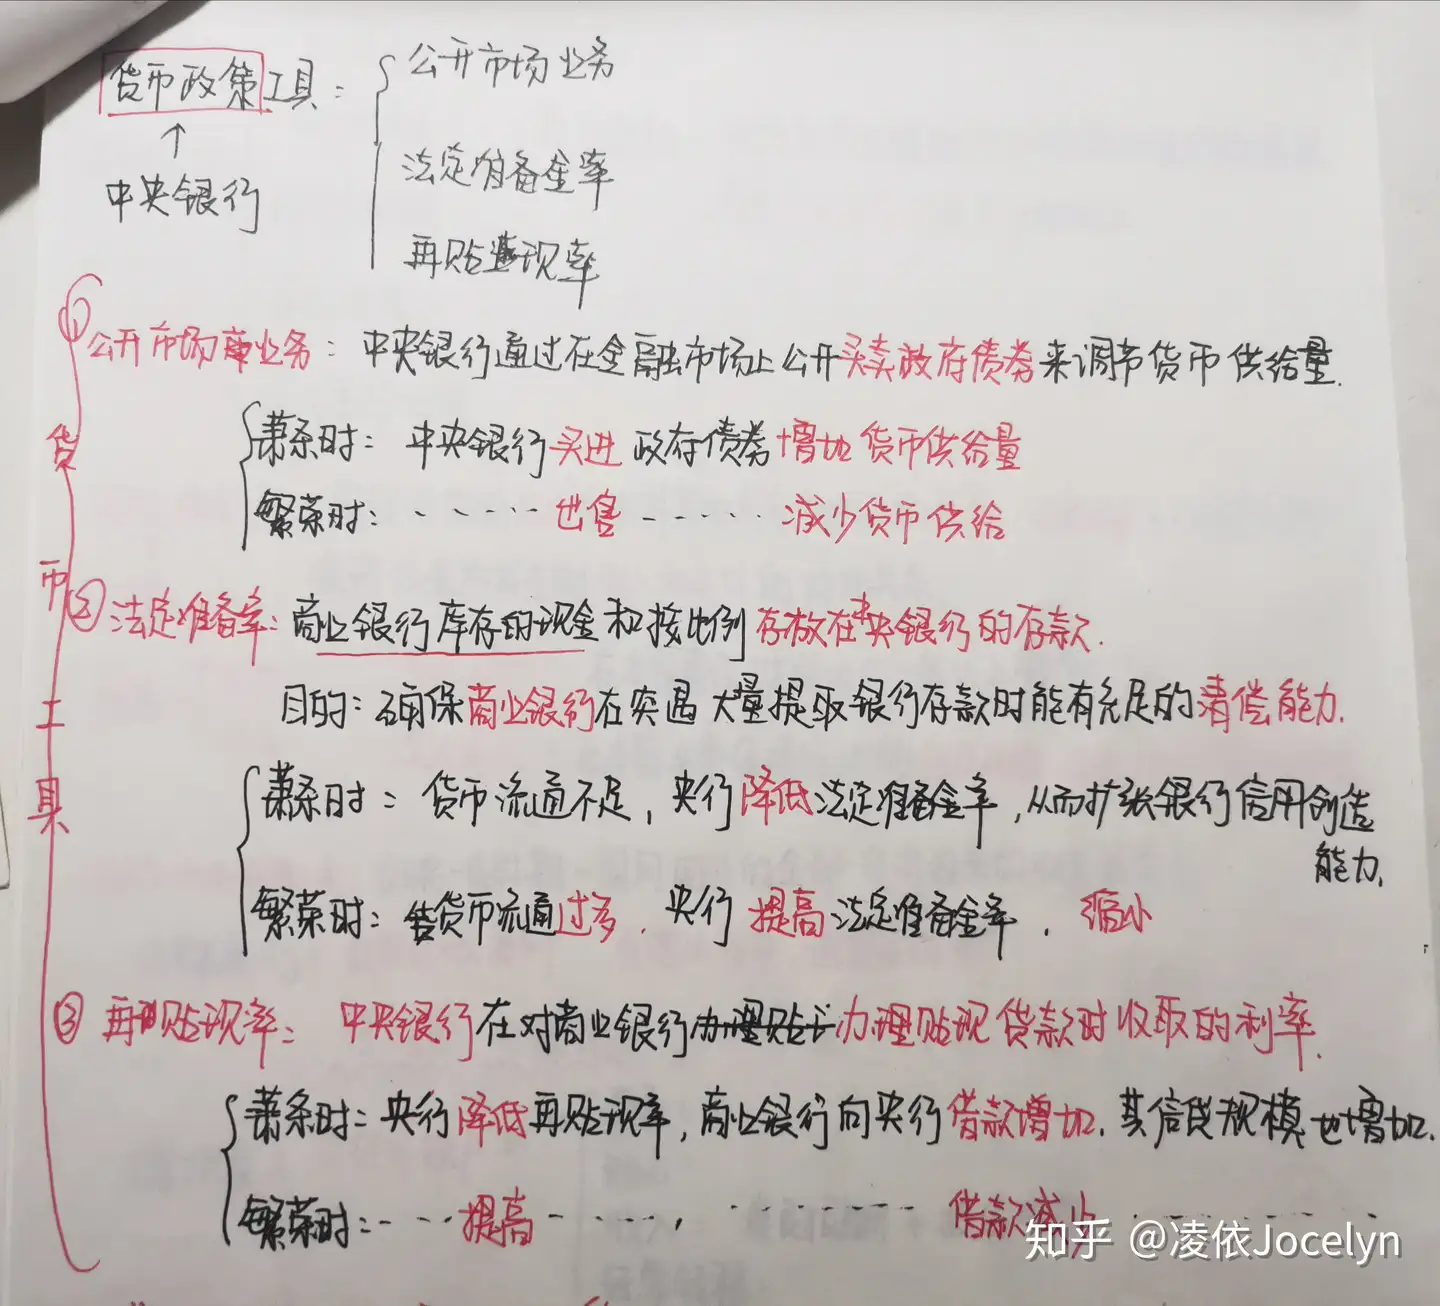 货币政策工具：
公开市场业务
法定准备金率
再贴现率
↑
中央银行
货币工具
① 公开市场业务：中央银行通过在金融市场上公开买卖政府债券来调节货币供给量.
萧条时：中央银行买进政府债券增加货币供给量
繁荣时：······出售······减少货币供给
② 法定准备率：商业银行库存的现金和按比例存放在中央银行的存款.
目的：确保商业银行在突遇大量提取银行存款时能有充足的清偿能力.
萧条时：货币流通不足，央行降低法定准备金率，从而扩张银行信用创造
能力.
繁荣时：货币流通过多，央行提高法定准备金率，缩小
③ 再贴现率：中央银行在对商业银行办理贴现贷款时收取的利率.
萧条时：央行降低再贴现率，商业银行向央行借款增加.其信贷规模也增加.
繁荣时：···提高·····，·······借款减少·······
知乎 @凌依Jocelyn